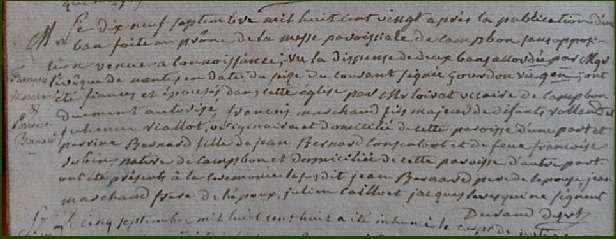 Le dix neuf septembre mil huit cent vingt après la publication d'un
ban faite au prône de la messe paroissiale de campbon sans oppo-
tion venue a connoissance; vu la dispense de deux bans accordée par Mgr
l'évêque de nantes en date du seize du courant signée vic gen; ont
été fiancés et épousés dans cette église par Mr loirat vicaire de campbon
duement autorisé, françois marchand fils majeur de défunts rolland et
julienne viallot, originaire et domicilié de cette paroisse d'une part et
perrine Bernard fille de jean Bernard consentant et de feue françoise
native de campbon et domiciliée de cette paroisse d'autre part
ont été présents à la cérémonie jean Bernard père de l'épouse, jean
marchand frere de l'époux, julien caillot et jacques signent
Durand
françois
marchand
&
perrine
Bernard
Le cinq septembre mil huit cent huit a été inhumé le corps de